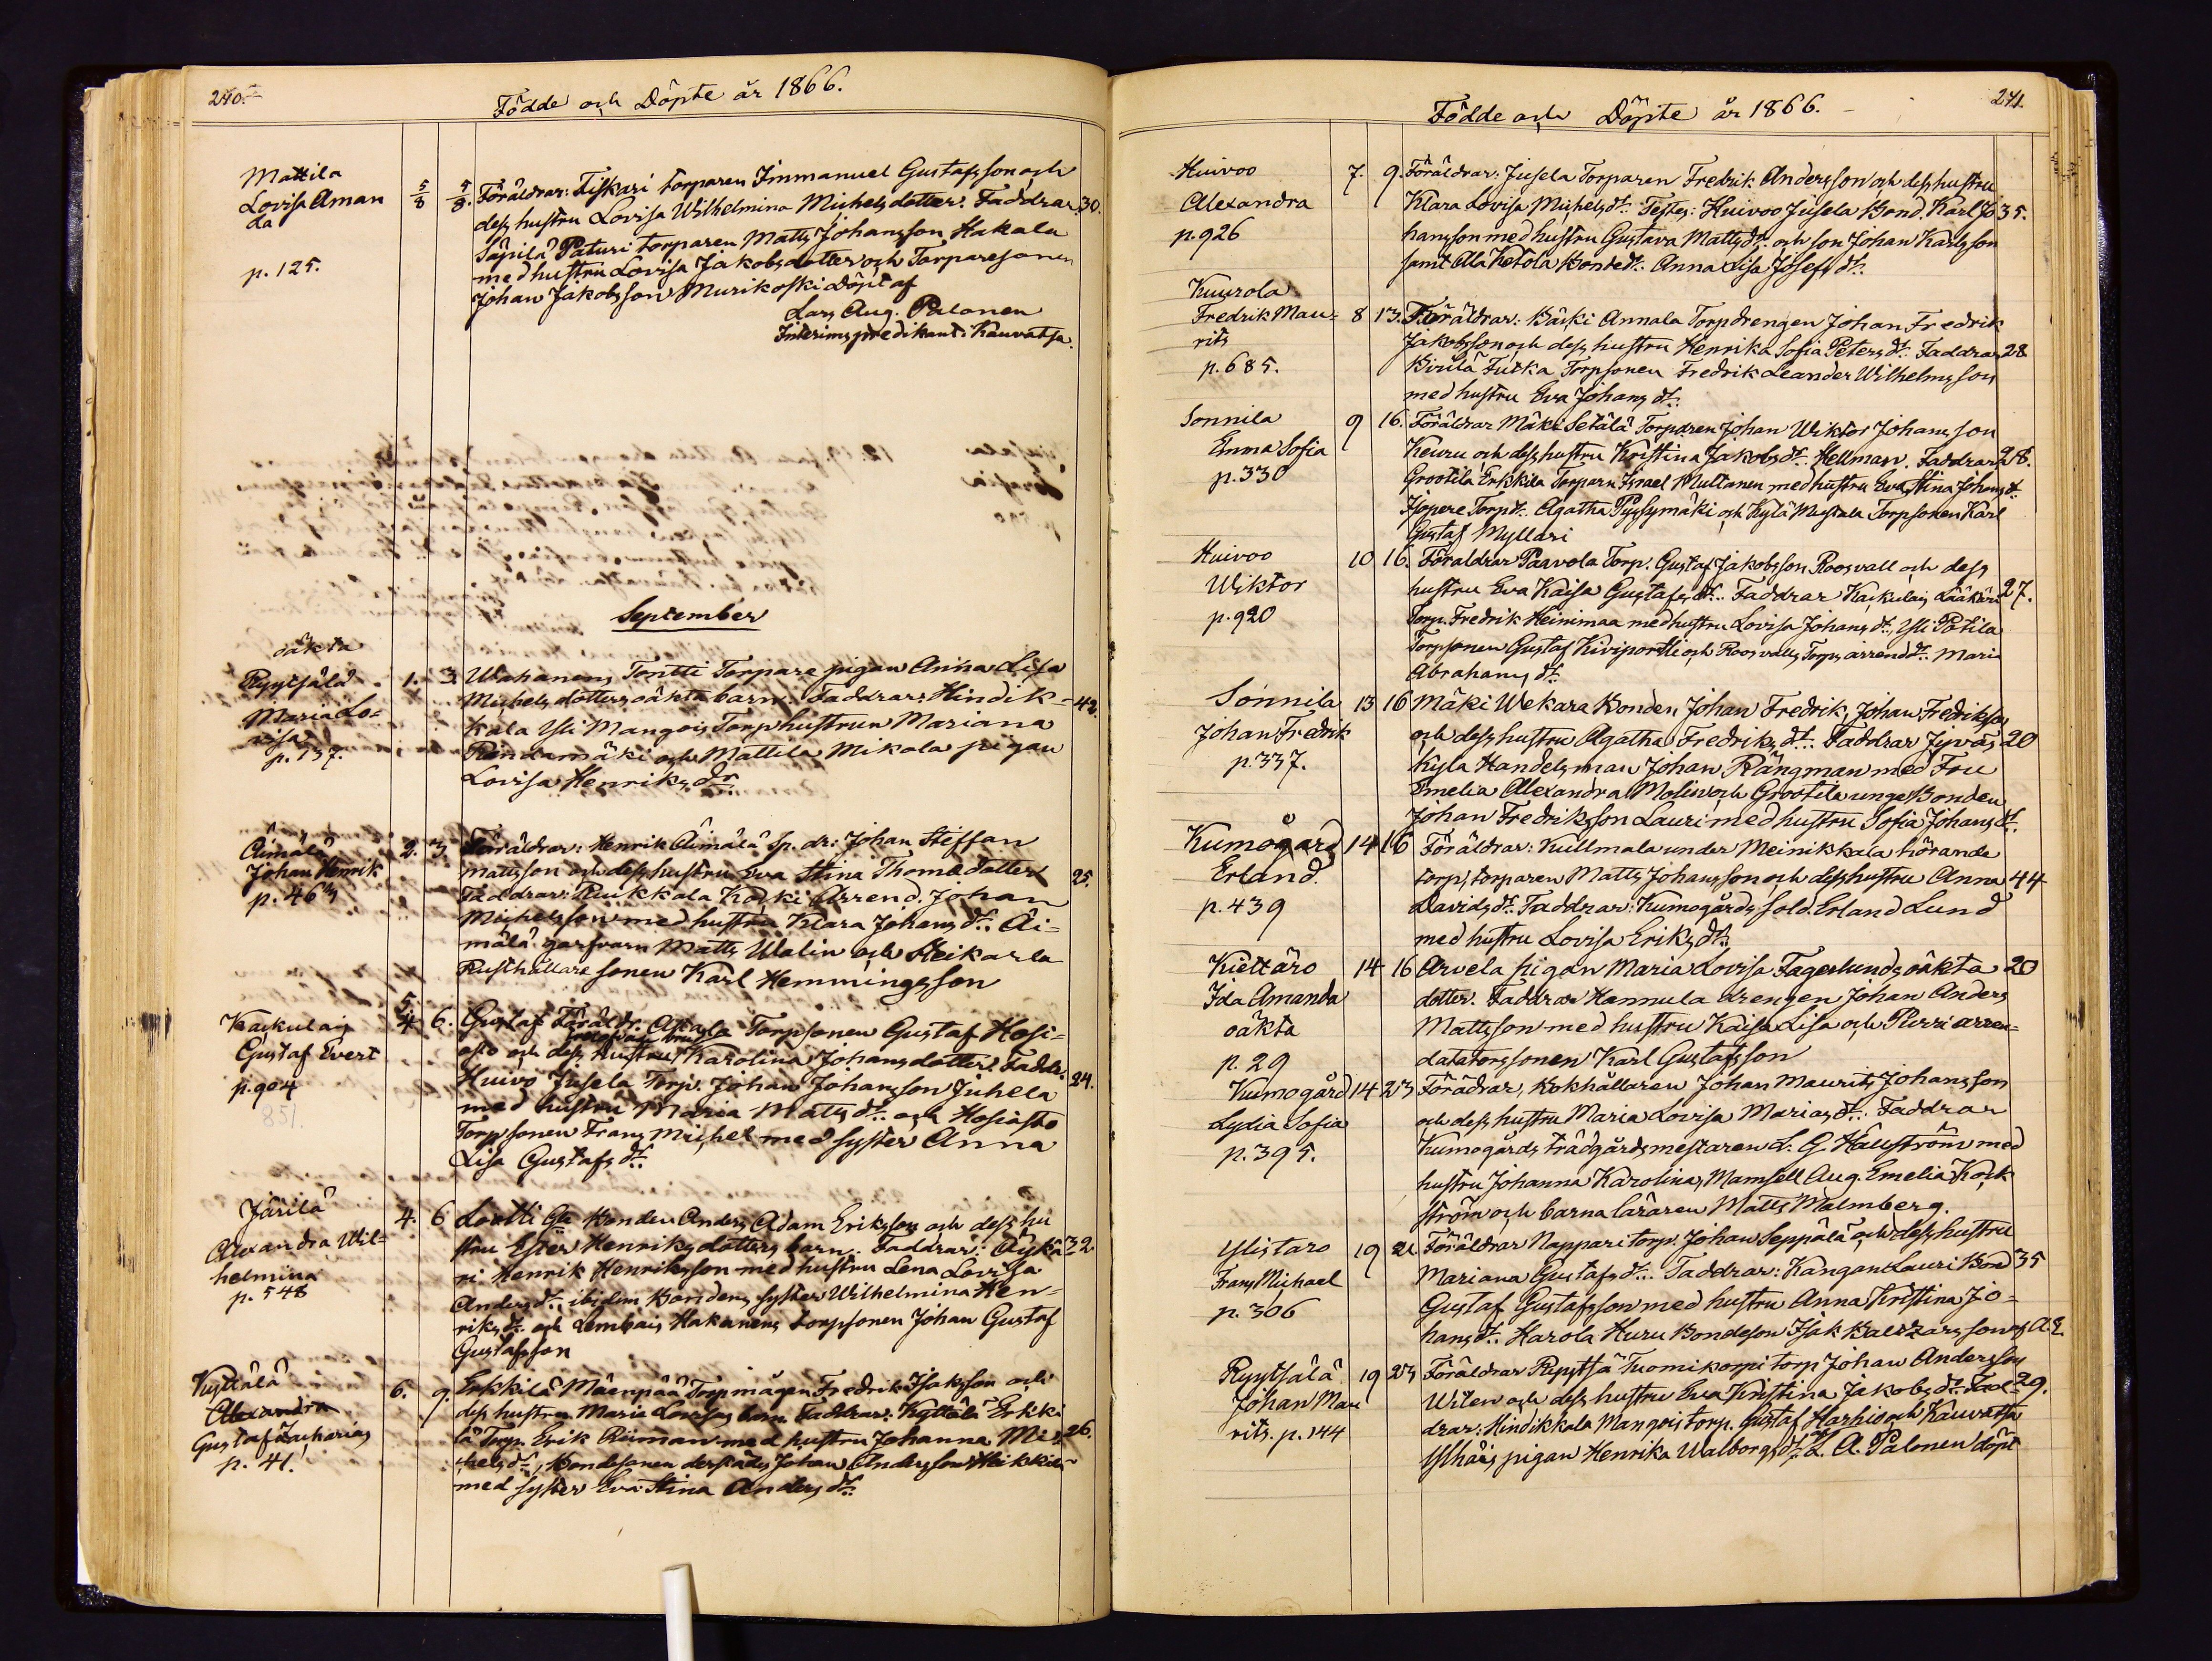 240.
Födde och Döpte år 1866.
Mattila
Lovisa Aman
da
p. 125.
5/8
5/8.
Föräldrar: Tiskari torparen Immanuel Gustafsson och
dess hustru Lovisa Wilhelmina Michelsdotter. Faddrar
30.
Säpilä Paturi torparen Matts Johansson Hakala
med hustru Lovisa Jakobsdotter och Torparesonen
Johan Jakobsson Murikoski Döpt af
Lars Aug. Palonen
Interimspredikant i Kauvatsa.
September
oäkta
Ryytsälä
Maria Lo=
visa
p. 137.
1. 3. Wahanens Tontti Torpare pigan Anna Lisa
Michelsdotters oäkta barn. Faddrar: Hindik=
42.
kala Yli Mangois Torp hustrun Mariana
Rindamäki och Mattila Mikola pigan
Lovisa Henriksdr.
Äimälä
Johan Henrik
p. 46
2. 3. Föräldrar: Henrik Äimälä Sp. dr: Johan Steffan
Mattsson och dess hustru Eva Stina Thomedotter
25.
Faddrar: Ruskkala Koski Arrend. Johan
Michelsson med hustru Klara Johansdr. Äi=
mälä garfvarn Matts Walin och Heikarla
Rusthållare sonen Karl Hemmingsson
Kaukulais
Gustaf Evert
p. 904
851.
5
4 6. Gustaf Föräldr. Torpsonen Gustaf Hosi=
asto och dess hustru Karolina Johansdotter. Faddr.
24.
Huivo Jusela Torp. Johan Johansson Juhela
med hustru Maria Mattsdr. och Hosiasto
Torpsonen Frans Michel med syster Anna
Lisa Gustafsdr.
Järilä
Alexandra Wil=
helmina
p. 548
4. 6 Lootti Bonden Anders Adam Eriksson och dess hu
stru Ester Henriksdotters barn. Faddrar:
32
ri Henrik Henriksson med hustru Lena Lovisa
Andersdr. ibidem Bondens syster Wilhelmina Hen=
riksdr. och Lembais Hakanens torpsonen Johan Gustaf
Gustafsson
Kyttälä
Alexandra
Gustaf Zacharias
p. 41.
6. 9. Erkkilä Mäenpää Torpmågen Fredrik Isaksson och
dess hustru Maria Lovisas barn. Faddrar: Kyttälä Erkki
26.
lä Torp. Erik Röiman med hustru Johanna Mi
helsdr., Bondesonen derstädes Johan Andersson Heikkilä
med syster Eva Stina Andersdr.
241.
Födde och Döpte år 1866.
Huivoo
Alexandra
p. 926
7. 9. Föräldrar: Jusela Torparen Fredrik Andersson och dess hustru
Klara Lovisa Michelsdr. Testes: Huivoo Jusela Bond. Karl Jo
35.
hansson med hustru Gustava Mattsdr. och son Johan Karlsson
samt Ala Ketola Bondedr. Anna Lisa Josefsdr.
Kuurola
Fredrik Mau=
rits
p. 685.
8 13. Föräldrar: Bäcki Annala Torpdrengen Johan Fredrik
Jakobsson och dess hustru Henrika Sofia Petersdr. Faddrar
28
Torpsonen Fredrik Leander Wilhelmsson
med hustru Eva Johansdr.
Sonnila
Emma Sofia
p. 330
9 16. Föräldrar Mäki Setälä Torparen Johan Wiktor Johansson
Keuru och dess hustru Kristina Jakobsdr. Hellman. Faddrar
28.
Grootila Erkkila Torparn Israel Multanen med hustru Eva Stina Johansdr.
Isopere Torpdr. Agatha Pyysymäki och Kylä Mustala Torpsonen Karl
Gustaf Myllari
Huivoo
Wiktor
p. 920
10 16. Föraldrar Paavola Torp. Gustaf Jakobsson Roosvall och dess
hustru Eva Kaisa Gustafsdr. Faddrar Kaukulais Lääkäri
27.
Torp. Fredrik Heinimaa med hustru Lovisa Johansdr., Yli Potila
Torpsonen Gustaf Kiviportti och Roosvalls Torps arrenddr. Maria
Abrahamsdr.
Sonnila
Johan Fredrik
p. 337.
13 16 Mäki Wekara Bonden Johan Fredrik Johan Fredriksson
och dess hustru Agatha Fredriksdr. Faddrar
20
kyla Handelsman Johan Rängman med Fru
Emelia Alexandra Molin och Grootila unge Bonden
Johan Fredriksson Lauri med hustru Sofia Johansdr.
Kumogård
Erland
p. 439
14 16 Föräldrar: Kullmala under Meinikkala hörande
torp, torparen Matts Johansson och dess hustru Anna
44
Davidsdr. Faddrar: Kumogårds Sold. Erland Lund
med hustru Lovisa Eriksdr.
Kiettäro
Ida Amanda
oäkta
p. 29
14 16 Arvela pigan Maria Lovisa Fagerlunds oäkta
20
dotter. Faddrar Hannula drengen Johan Anders
Mattsson med hustru Kaisa Lisa och Pirri arren=
datatorssonen Karl Gustafsson
Kumogård
Lydia Sofia
p. 395.
14 23 Föräldrar, Bokhållaren Johan Maurits Johansson
och dess hustru Maria Lovisa Mariasdr. Faddrar
Kumogårds trädgårdsmestaren L. G. Hällström med
hustru Johanna Karolina, Mamsell Aug. Emelia Kock
ström och barnaläraren Matts Malmberg.
Ylistaro
Frans Michael
p. 306
19 21 Föräldrar Nappari torp. Johan Seppälä och dess hustru
Mariana Gustafsdr. Faddrar: Kangan Lauri Bond
35
Gustaf Gustafsson med hustru Anna Kristina Jo=
hansdr. Harola Huru Bondeson Isak Baltzarsson
Ryytsälä
Johan Mau
rits. p. 144
19 23 Föräldrar Ryytsä Tuomikorpi torp Johan Andersson
Witen och dess hustru Eva Kristina Jakobsdr. Fad=
29.
drar: Hindikkala Mangois torp. Gustaf Harhio och Kauvatsa
Ylhäis pigan Henrika Walborgsdr. af L. A. Palonen döpt